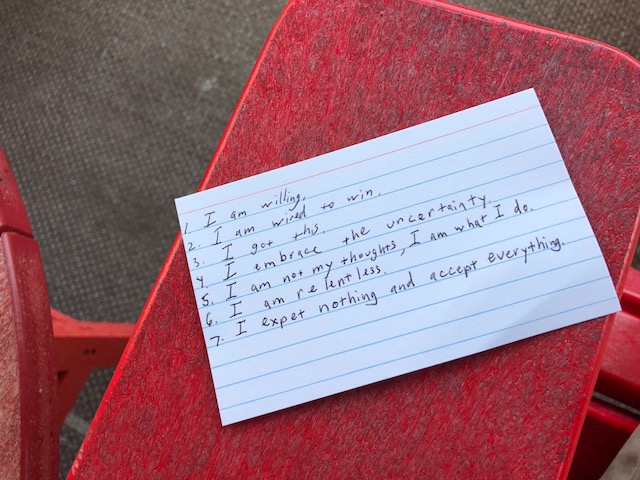 1. I am willing.
2. I am wired to win.
3. I got this.
4. I embrace the uncertainty.
5. I am not my thoughts, I am what I do.
6. I am relentless.
7. I expet nothing and accept everything.